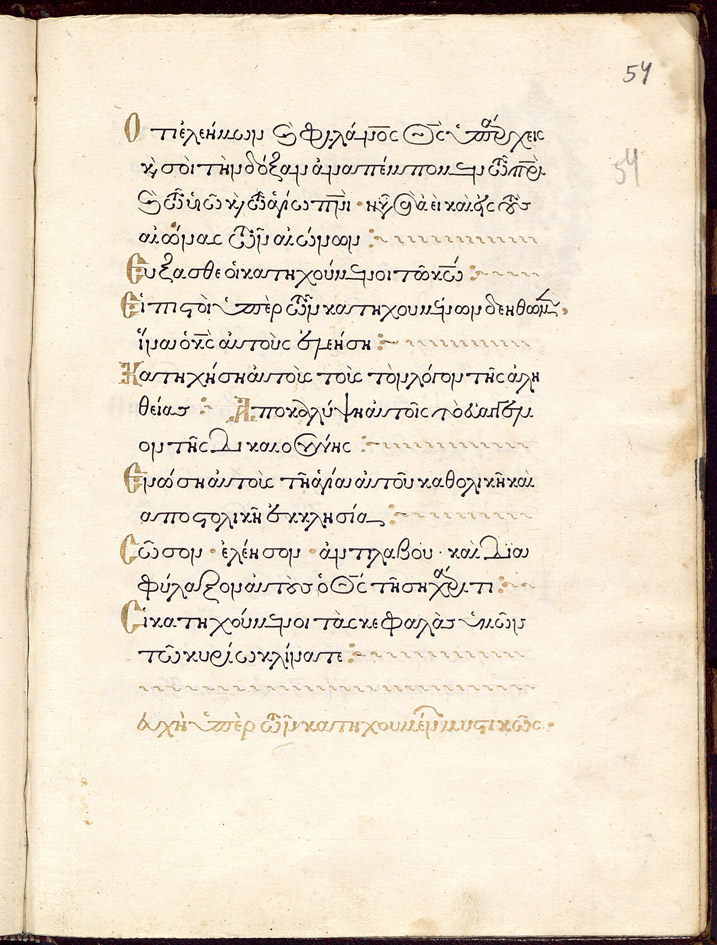 54
54
Ὅτι ἐλεήμων καὶ φιλάνος Θς ὑπάρχεις
κ σοὶ τὴν δόξαν ἀναπέμπομεν τῶ πρὶ
καὶ τῶ υἱῶ κ τῶ ἁγίω πνι · νῦν κ ἀεὶ καὶ εἰς τοὺς
αἰῶνας τῶν αἰώνων :~
Εὔξασθε οἱ κατηχούμενοι τῶ κω :~
Οἱ πιστοὶ ὑπὲρ τῶν κατηχουμένων δεηθῶμεν,
ἵνα ὁ κς αὐτοὺς ἐλεήση :~
Κατηχήση αὐτοὺς τοὺς τὸν λόγον τῆς ἀλη
θείας :~ Ἀποκαλύψη αὐτοῖς τὸ εὐαγγέλι
ον τῆς δικαιοσύνης :~
Ἑνώση αὐτοὺς τῆ ἁγία αὐτοῦ καθολικῆ καὶ
ἀποστολικῆ ἐκκλησία :~
Σῶσον · ἐλέησον · ἀντιλαβοῦ · καὶ δια
φύλαξον αὐτοὺς ὁ Θς τῆ σῆ χάριτι :~
Οἱ κατηχούμενοι τὰς κεφαλὰς ὑμῶν
τῶ κυρίω κλίνατε :~
εὐχὴ ὑπὲρ τῶν κατηχουμένων μυστικῶς ·